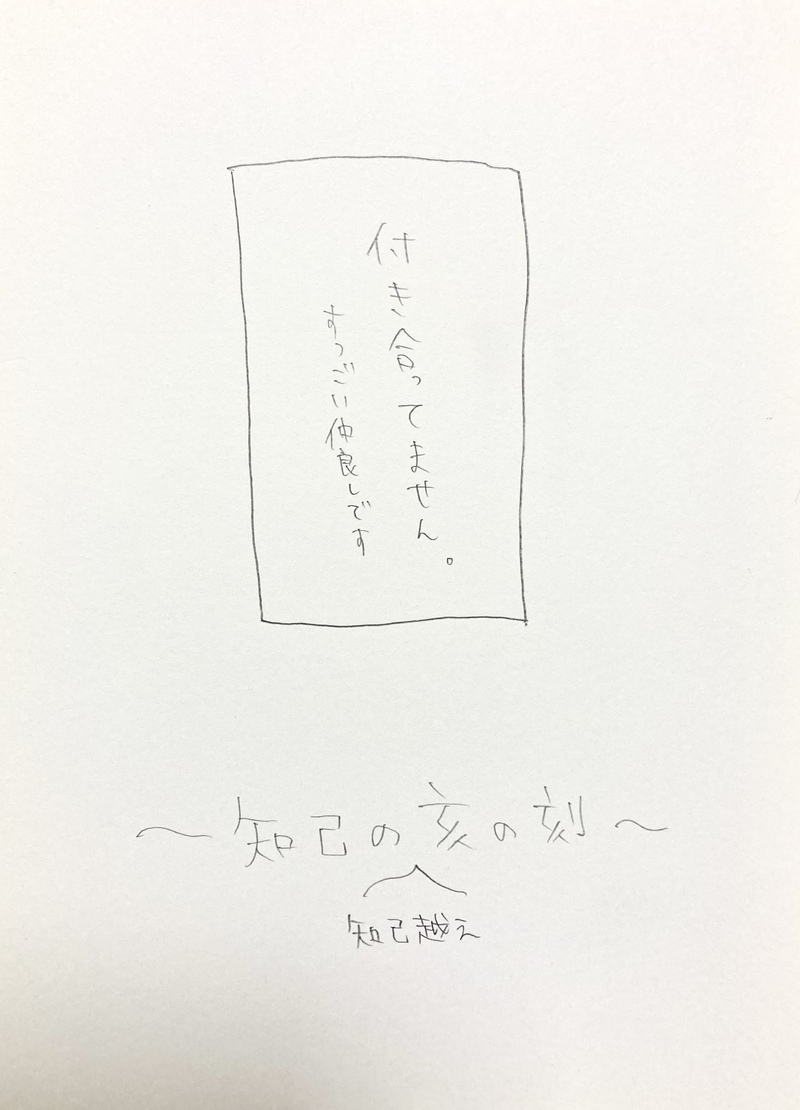 付き合ってません。
すっごい仲良しです
〜知己の亥の刻〜
知己越え